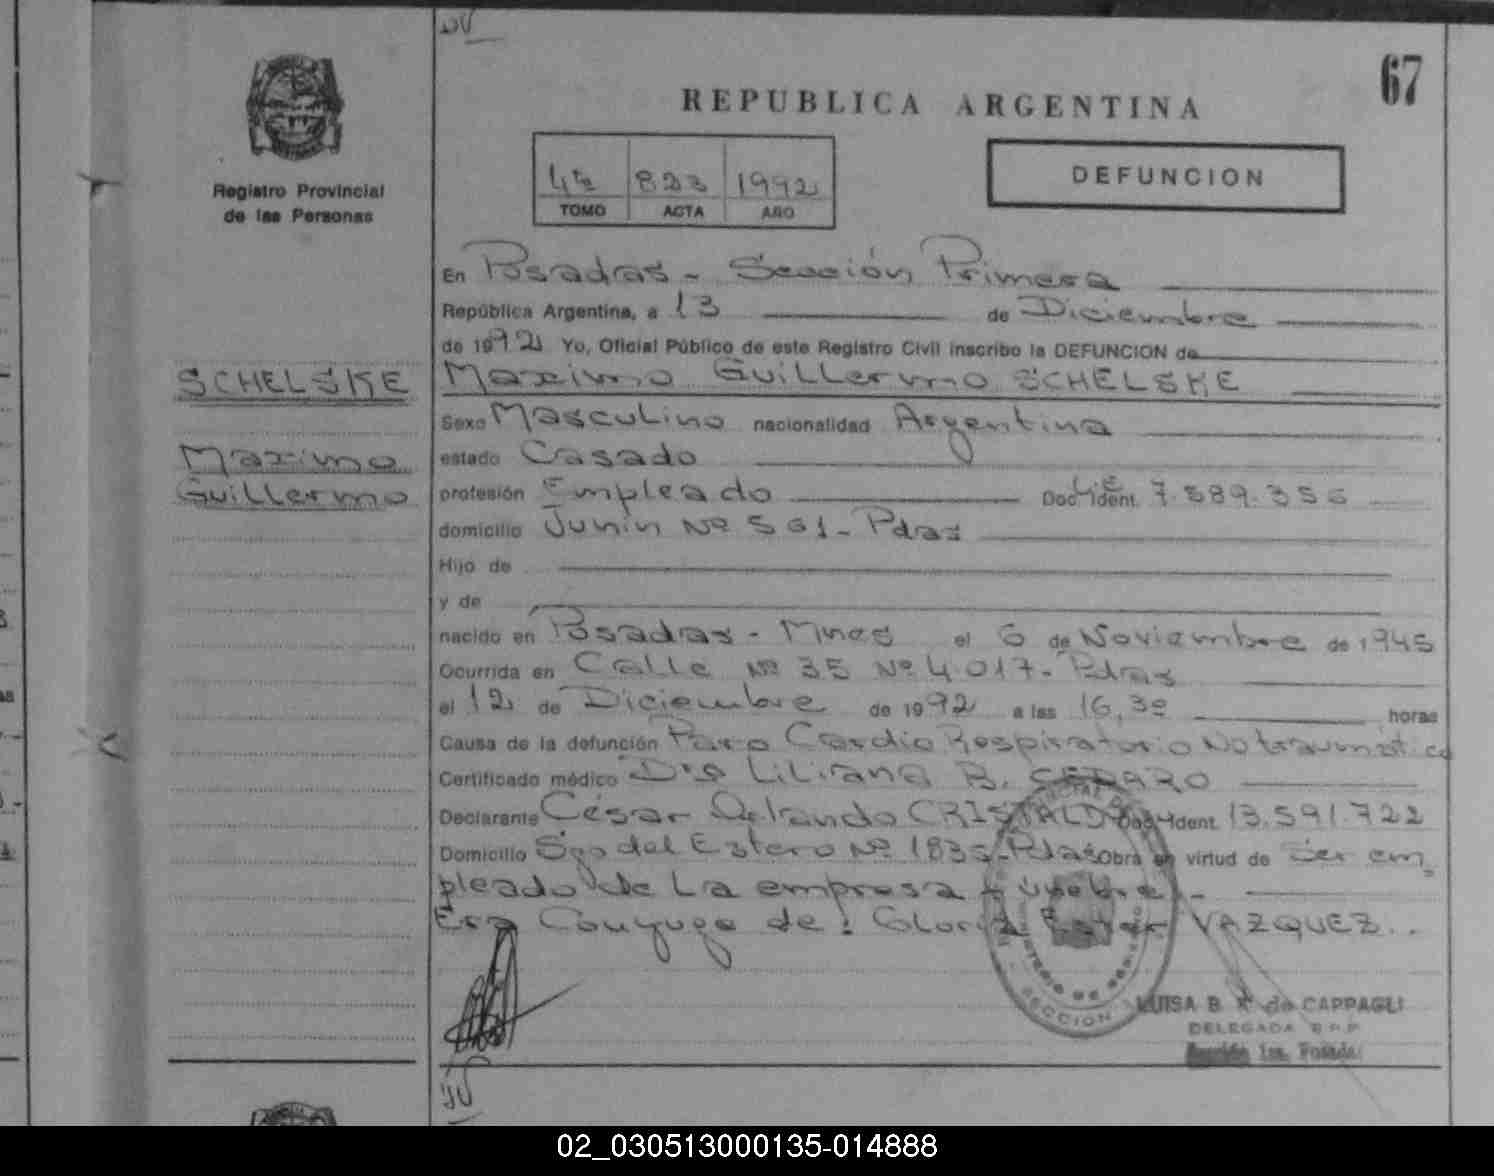 67
REPUBLICA ARGENTINA
DEFUNCION
4º 823 1992
TOMO ACTA AÑO
Registro Provincial
de las Personas
SCHELSKE
Maximo
Guillermo
En Posadas - Sección Primera
República Argentina, a 13 de Diciembre
de 1992 Yo, Oficial Público de este Registro Civil inscribo la DEFUNCION de
Maximo Guillermo SCHELSKE
Sexo Masculino nacionalidad Argentina
estado Casado
profesión Empleado Doc. Ident. L.E 7.589.356
domicilio Junin Nº 561 - Pdas
Hijo de
y de
nacido en Posadas - Mnes el 6 de Noviembre de 1945
Ocurrida en Calle Nº 35 Nº 4.017 - Pdas
el 12 de Diciembre de 1992 a las 16,30 horas
Causa de la defunción Paro Cardio Respiratorio No traumatico
Certificado médico Dra Liliana B.
Declarante César Orlando CRISTALDO Doc. Ident. 13.591.722
Domicilio Sgo del Estero Nº 1835 - Pdas Obra en virtud de Ser em-
pleado de La empresa fúnebre -
Era Conyuge de: Gloria Ester VAZQUEZ..
SECCION
LUISA B. K de CAPPAGLI
DELEGADA R.P.P
Sección 1ra. Posadas
02_030513000135-014888